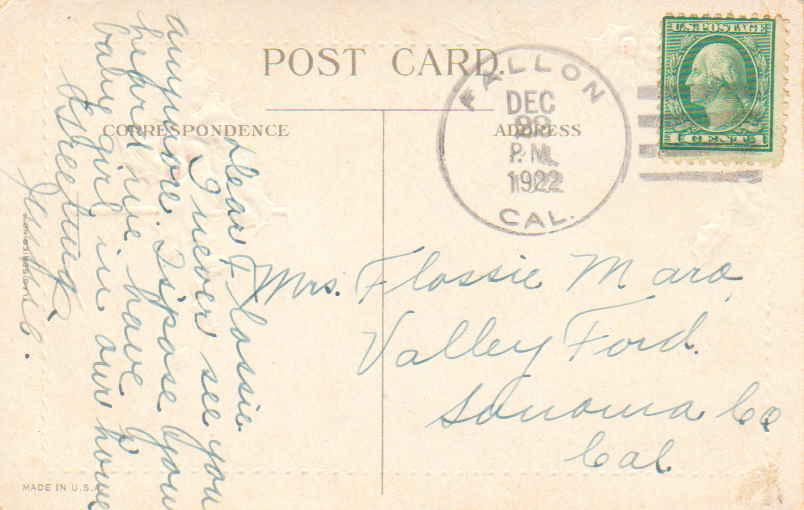 POST CARD.
CORRESPONDENCE
ADDRESS
U.S. POSTAGE
1 CENT 1
FALLON
DEC
P.M.
1922
CAL.
Dear Flossie
I never see you
anymore. I spose you
heard we have a
baby girl in our home
Greetings
Mrs. Flossie Maro
Valley Ford.
Sonoma Co
Cal
MADE IN U.S.A.